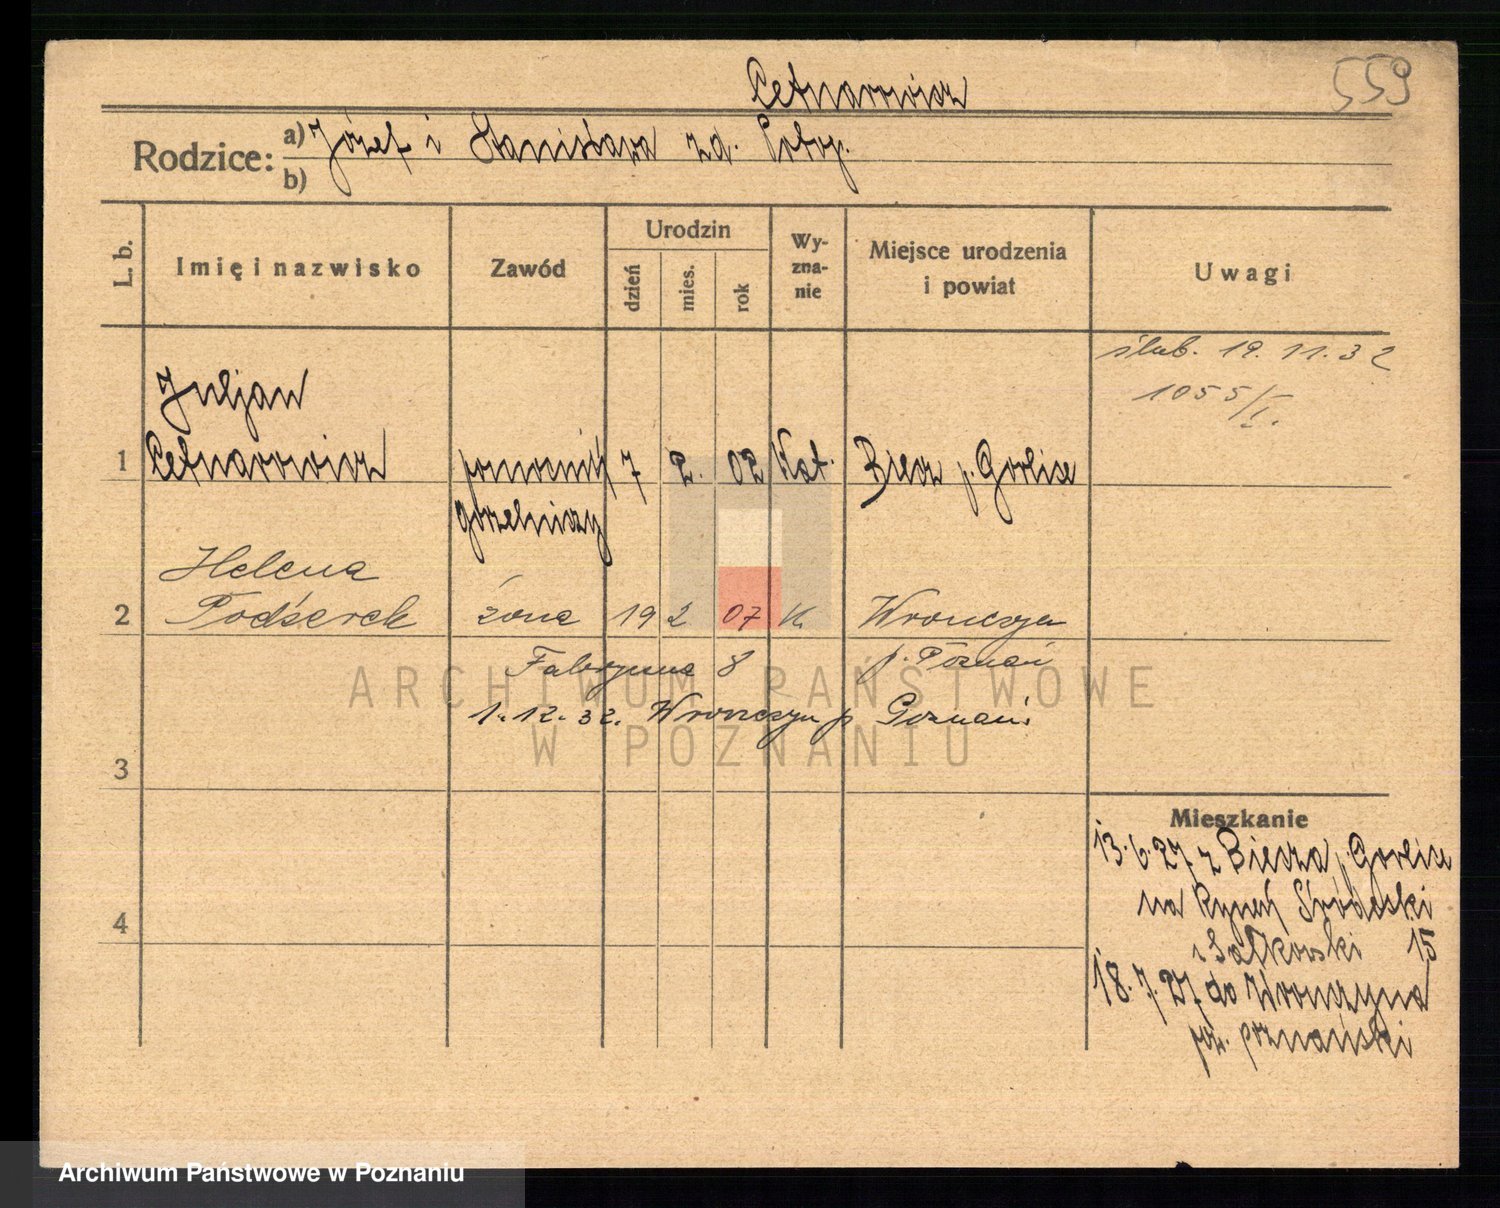 Cetnarowicz
559
Rodzice: a) Józef i Stanisława zd.
b)
L. b.
Imię i nazwisko
Zawód
Urodzin
dzień
mies.
rok
Wy-
zna-
nie
Miejsce urodzenia
i powiat
Uwagi
ślub. 19. 11. 32
1055/I.
Juljan
1 Cetnarowicz pomocnik 7 2. 02 Kat. Biecz p. Gorlice
gorzelniczy
Helena
2 Podżerek żona 19 2 07 K. Wronczyn
Fabryczna 8 p. Poznań
1.12.32. Wronczyn p Poznań.
3
Mieszkanie
13.6.27 z Biecza p. Gorlice
4 na Rynek Śródecki
15
18.7.27 do Wronczyna
poznański
ARCHIWUM PAŃSTWOWE
W POZNANIU
Archiwum Państwowe w Poznaniu